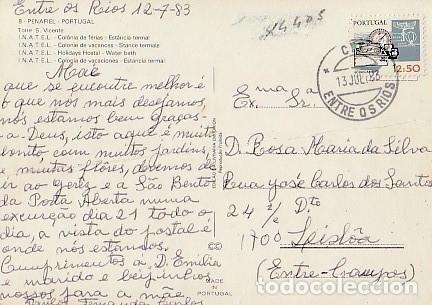 Entre os Rios 12-7-83
8 - PENAFIEL - PORTUGAL
Torre S. Vicente
I.N.A.T.E.L. - Colónia de férias - Estância termal
I.N.A.T.E.L. - Colonie de vacances - Stance termale
I.N.A.T.E.L. - Holidays Hostal - Water bath
I.N.A.T.E.L. - Cologia de vacaciones - Estancia termal
Mãe
que se encontre melhor é
o que nós mais desejamos,
nós estamos bem graças-
a-Deus, isto aqui é muito
bonito com muitos jardins,
e muitas flôres, devemos de
ir ao Gerez e a São Bento
da Porta Aberta numa
excurção dia 21 todo o
dia, a vista do postal é
onde nós estamos.
Cumprimentos á D. Emilia
e marido e beijinhos
nossos para a mãe
Fernanda
PORTUGAL
12$50
13 JUL 83
ENTRE OS RIOS
Ex.ma Sr.a
D. Rosa Maria da Silva
Rua José Carlos dos Santos
24 2/º Dto
1700 Lisbôa
(Entre-Campos)
MADE IN
PORTUGAL
todocoleccion.net